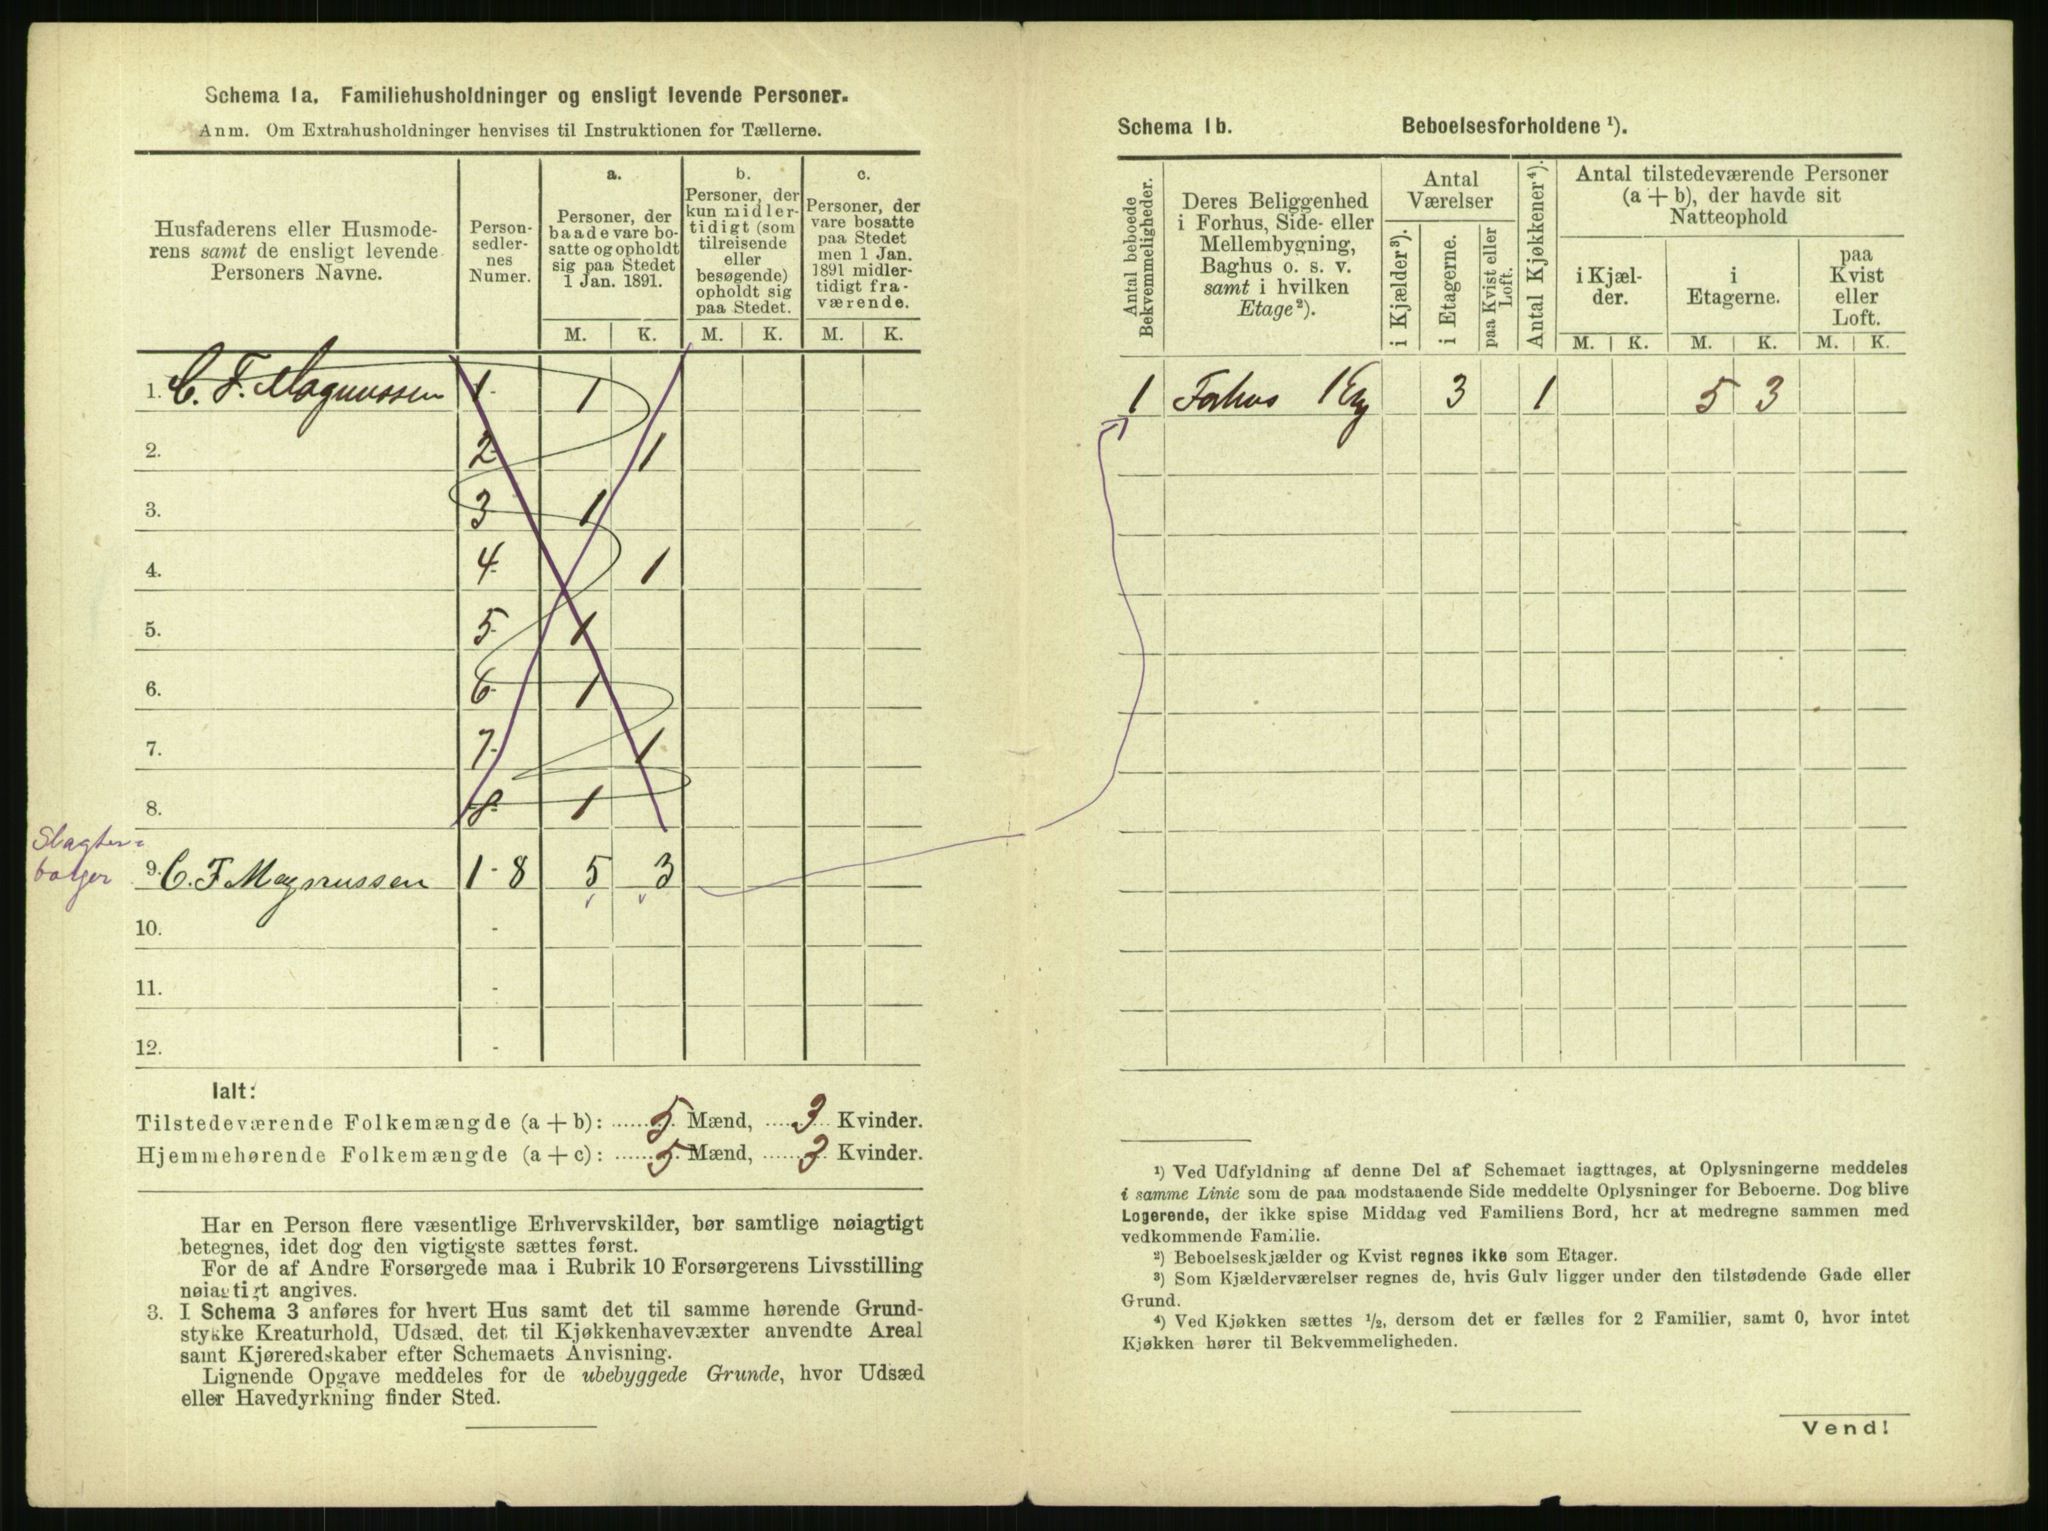 Schema 1a. Familiehusholdninger og ensligt levende Personer.
Anm. Om Extrahusholdninger henvises til Instruktionen for Tællerne.
Husfaderens eller Husmode-
rens samt de ensligt levende
Personers Navne.
Person-
sedler-
nes
Numer.
a.
Personer, der
baade vare bo-
satte og opholdt
sig paa Stedet
1 Jan. 1891.
b.
Personer, der
kun midler-
tidigt (som
tilreisende
eller
besøgende)
opholdt sig
paa Stedet.
c.
Personer, der
vare bosatte
paa Stedet
men 1 Jan.
1891 midler-
tidigt fra-
værende.
M. K. M. K. M. K.
1. C. F. Magnussen 1 1
2. 2 1
3. 3 1
4. 4 1
5. 5 1
6. 6 1
7. 7 1
8. 8 1
Slagter-
9. C. F Magnussen 1-8 5 3
10. -
11. -
12. -
Ialt:
Tilstedeværende Folkemængde (a + b): 5 Mænd, 3 Kvinder.
Hjemmehørende Folkemængde (a + c): 5 Mænd, 3 Kvinder.
Har en Person flere væsentlige Erhvervskilder, bør samtlige nøiagtigt
betegnes, idet dog den vigtigste sættes først.
For de af Andre Forsørgede maa i Rubrik 10 Forsørgerens Livsstilling
nøiagtigt angives.
3. I Schema 3 anføres for hvert Hus samt det til samme hørende Grund-
stykke Kreaturhold, Udsæd, det til Kjøkkenhavevæxter anvendte Areal
samt Kjøreredskaber efter Schemaets Anvisning.
Lignende Opgave meddeles for de ubebyggede Grunde, hvor Udsæd
eller Havedyrkning finder Sted.
Schema 1b. Beboelsesforholdene ¹).
Antal beboede
Bekvemmeligheder.
Deres Beliggenhed
i Forhus, Side- eller
Mellembygning,
Baghus o. s. v.
samt i hvilken
Etage²).
Antal
Værelser
i Kjælder³).
i Etagerne.
paa Kvist eller
Loft.
Antal Kjøkkener⁴).
Antal tilstedeværende Personer
(a + b), der havde sit
Natteophold
i Kjæl-
der.
i
Etagerne.
paa
Kvist
eller
Loft.
M. K. M. K. M. K.
1 Forhus 1 Etg 3 1 5 3
¹) Ved Udfyldning af denne Del af Schemaet iagttages, at Oplysningerne meddeles
i samme Linie som de paa modstaaende Side meddelte Oplysninger for Beboerne. Dog blive
Logerende, der ikke spise Middag ved Familiens Bord, her at medregne sammen med
vedkommende Familie.
²) Beboelseskjælder og Kvist regnes ikke som Etager.
³) Som Kjælderværelser regnes de, hvis Gulv ligger under den tilstødende Gade eller
Grund.
⁴) Ved Kjøkken sættes ½, dersom det er fælles for 2 Familier, samt 0, hvor intet
Kjøkken hører til Bekvemmeligheden.
Vend!